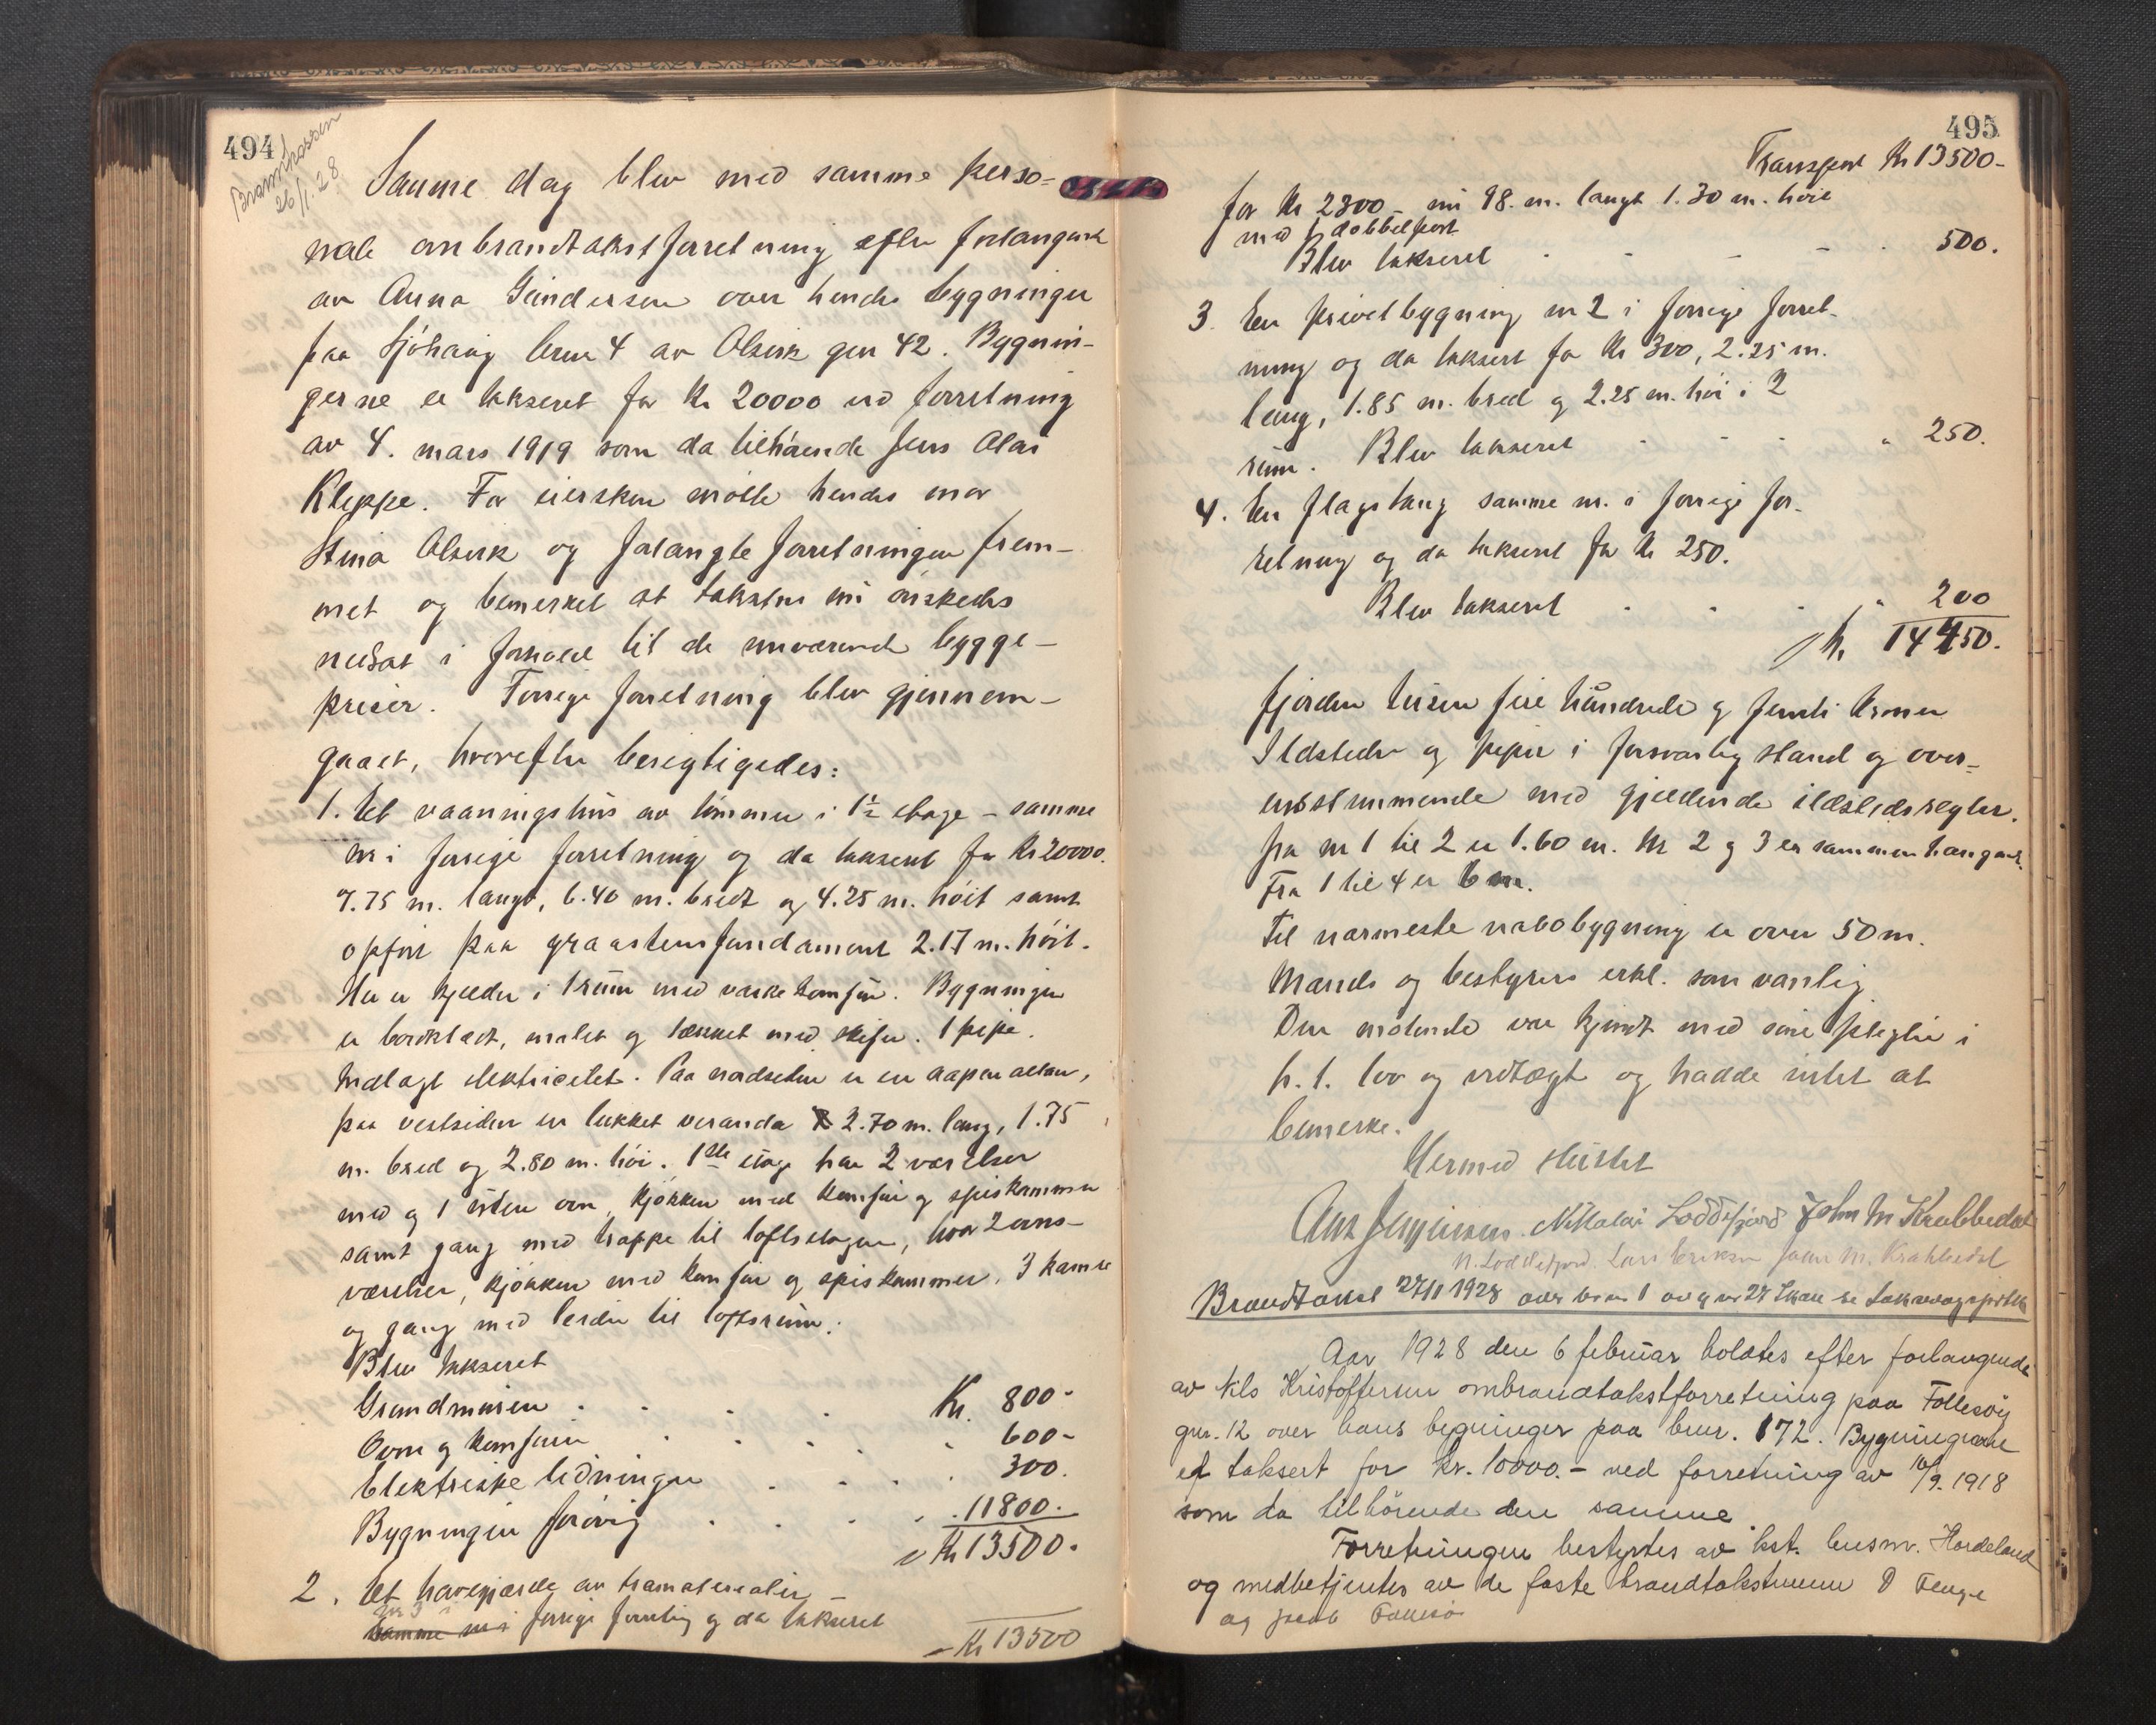 494
Brandkassen
26/1.28
Samme dag blev med samme perso=
nale ombrandtakstforretning efter forlangende
av Anna Gundersen over hendes bygninger
paa Sjöhaug brnr 4 av Olsvik gnr 42. Bygnin-
gerne er takseret for Kr 20000 ved forretning
av 4. mars 1919 som da tilhörende Jens Olai
Kleppe. For eiersken mötte hendes mor
Stina Olsvik og forlangte forretningen frem-
met og bemerket at taksten nu önskedes
nedsat i forhold til de nuværende bygge-
priser. Forrige forretning blev gjennem-
gaaet, hvorefter besigtigedes:
1. Et vaaningshus av tömmer i 1½ etage - samme
nr i forrige forretning og da takseret for Kr 20000.
7.75 m. langt, 6.40 m. bredt og 4.25 m. höit samt
opfört paa graastensfundament 2.17 m. höit.
Her er kjelder i 1 rum med vaskekomfur. Bygningen
er bordklædt, malet og tækket med skifer. 1 pipe.
Indlagt elektricitet. Paa nordsiden er en aapen altan,
paa vestsiden en lukket veranda 2.70 m. lang, 1.75
m. bred og 2.80 m. höi. 1ste etage har 2 værelser
med og 1 uten ovn, kjökken med komfur og spiskammer
samt gang med trappe til loftsetagen, hvor 2 ovns-
værelser, kjökken med komfur og spiskammer, 3 kamre
og gang med leider til loftsrum.
Blev takseret
Grundmuren . . . . Kr. 800-
Ovne og komfurer . . . . " 600-
Elektriske ledninger . . . 300.
Bygningen forövrig . . . . " 11800.
Kr 13500.
2. Et havegjærde av tramaterialier
nr 3 i
samme nr i forrige forretning og da takseret
- Kr 13500
495
Transport Kr 13500-
for Kr 2300 - nu 98. m. langt 1.30 m. höit
med 1 dobbelport
Blev takseret . - - - . 500.
3. En privetbygning nr 2 i forrige forret-
ning og da taksert for Kr 300, 2.25 m.
lang, 1.85 m. bred og 2.25 m. höi i 2
rum. Blev takseret - - - " 250.
4. En flagstang samme nr. i forrige for-
retning og da takseret for Kr 250.
Blev takseret - - - " 200
Kr. 14450.
fjorden tusen fire hundrede og femti kroner
Ildsteder og piper i forsvarlig stand og over=
ensstemmende med gjeldende ildstedsregler.
fra nr 1 til 2 er 1.60 m. Nr 2 og 3 er sammenhangende.
Fra 1 til 4 er 6 m.
Til nærmeste nabobygning er over 50 m.
Mænds og bestyrers erkl. som vanlig
Den mötende var kjendt med sine plegter i
h. t. lov og vedtægt og hadde intet at
bemerke.
Hermed sluttet
Nikolai Loddefjord John M Krabbedal
N. Loddefjord. Lars Eriksen John M. Krabbedal
Brandtakst 27/1 1928 over brnr 1 av gnr 27 se
Aar 1928 den 6 februar holdtes efter forlangende
av Nils Kristoffersen ombrandtakstforretning paa Follesöy
gnr. 12 over hans bygninger paa brnr. 172. Bygningerne
er taksert for kr. 10000.- ved forretning av 10/9. 1918
som da tilhörende den samme
Forretningen bestyrtes av kst. lensm. Hordeland
og medbetjentes av de faste brandtakstmenn O Tenge
og Jacob Follesö